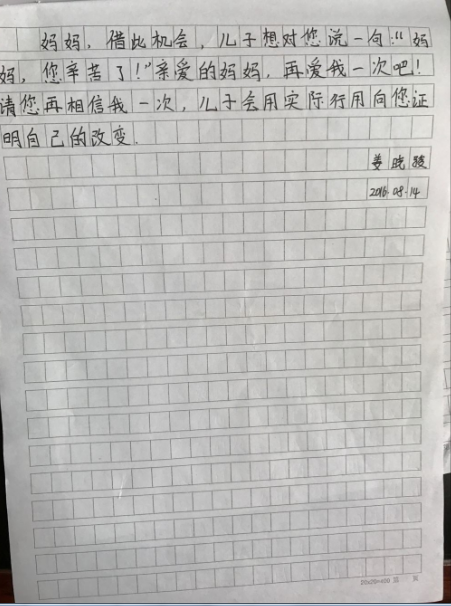 妈妈，借此机会，儿子想对您说一句：“妈
妈，您辛苦了！”亲爱的妈妈，再爱我一次吧！
请您再相信我一次，儿子会用实际行用向您证
明自己的改变.
姜晓骏
2016.08.14
20×20=400